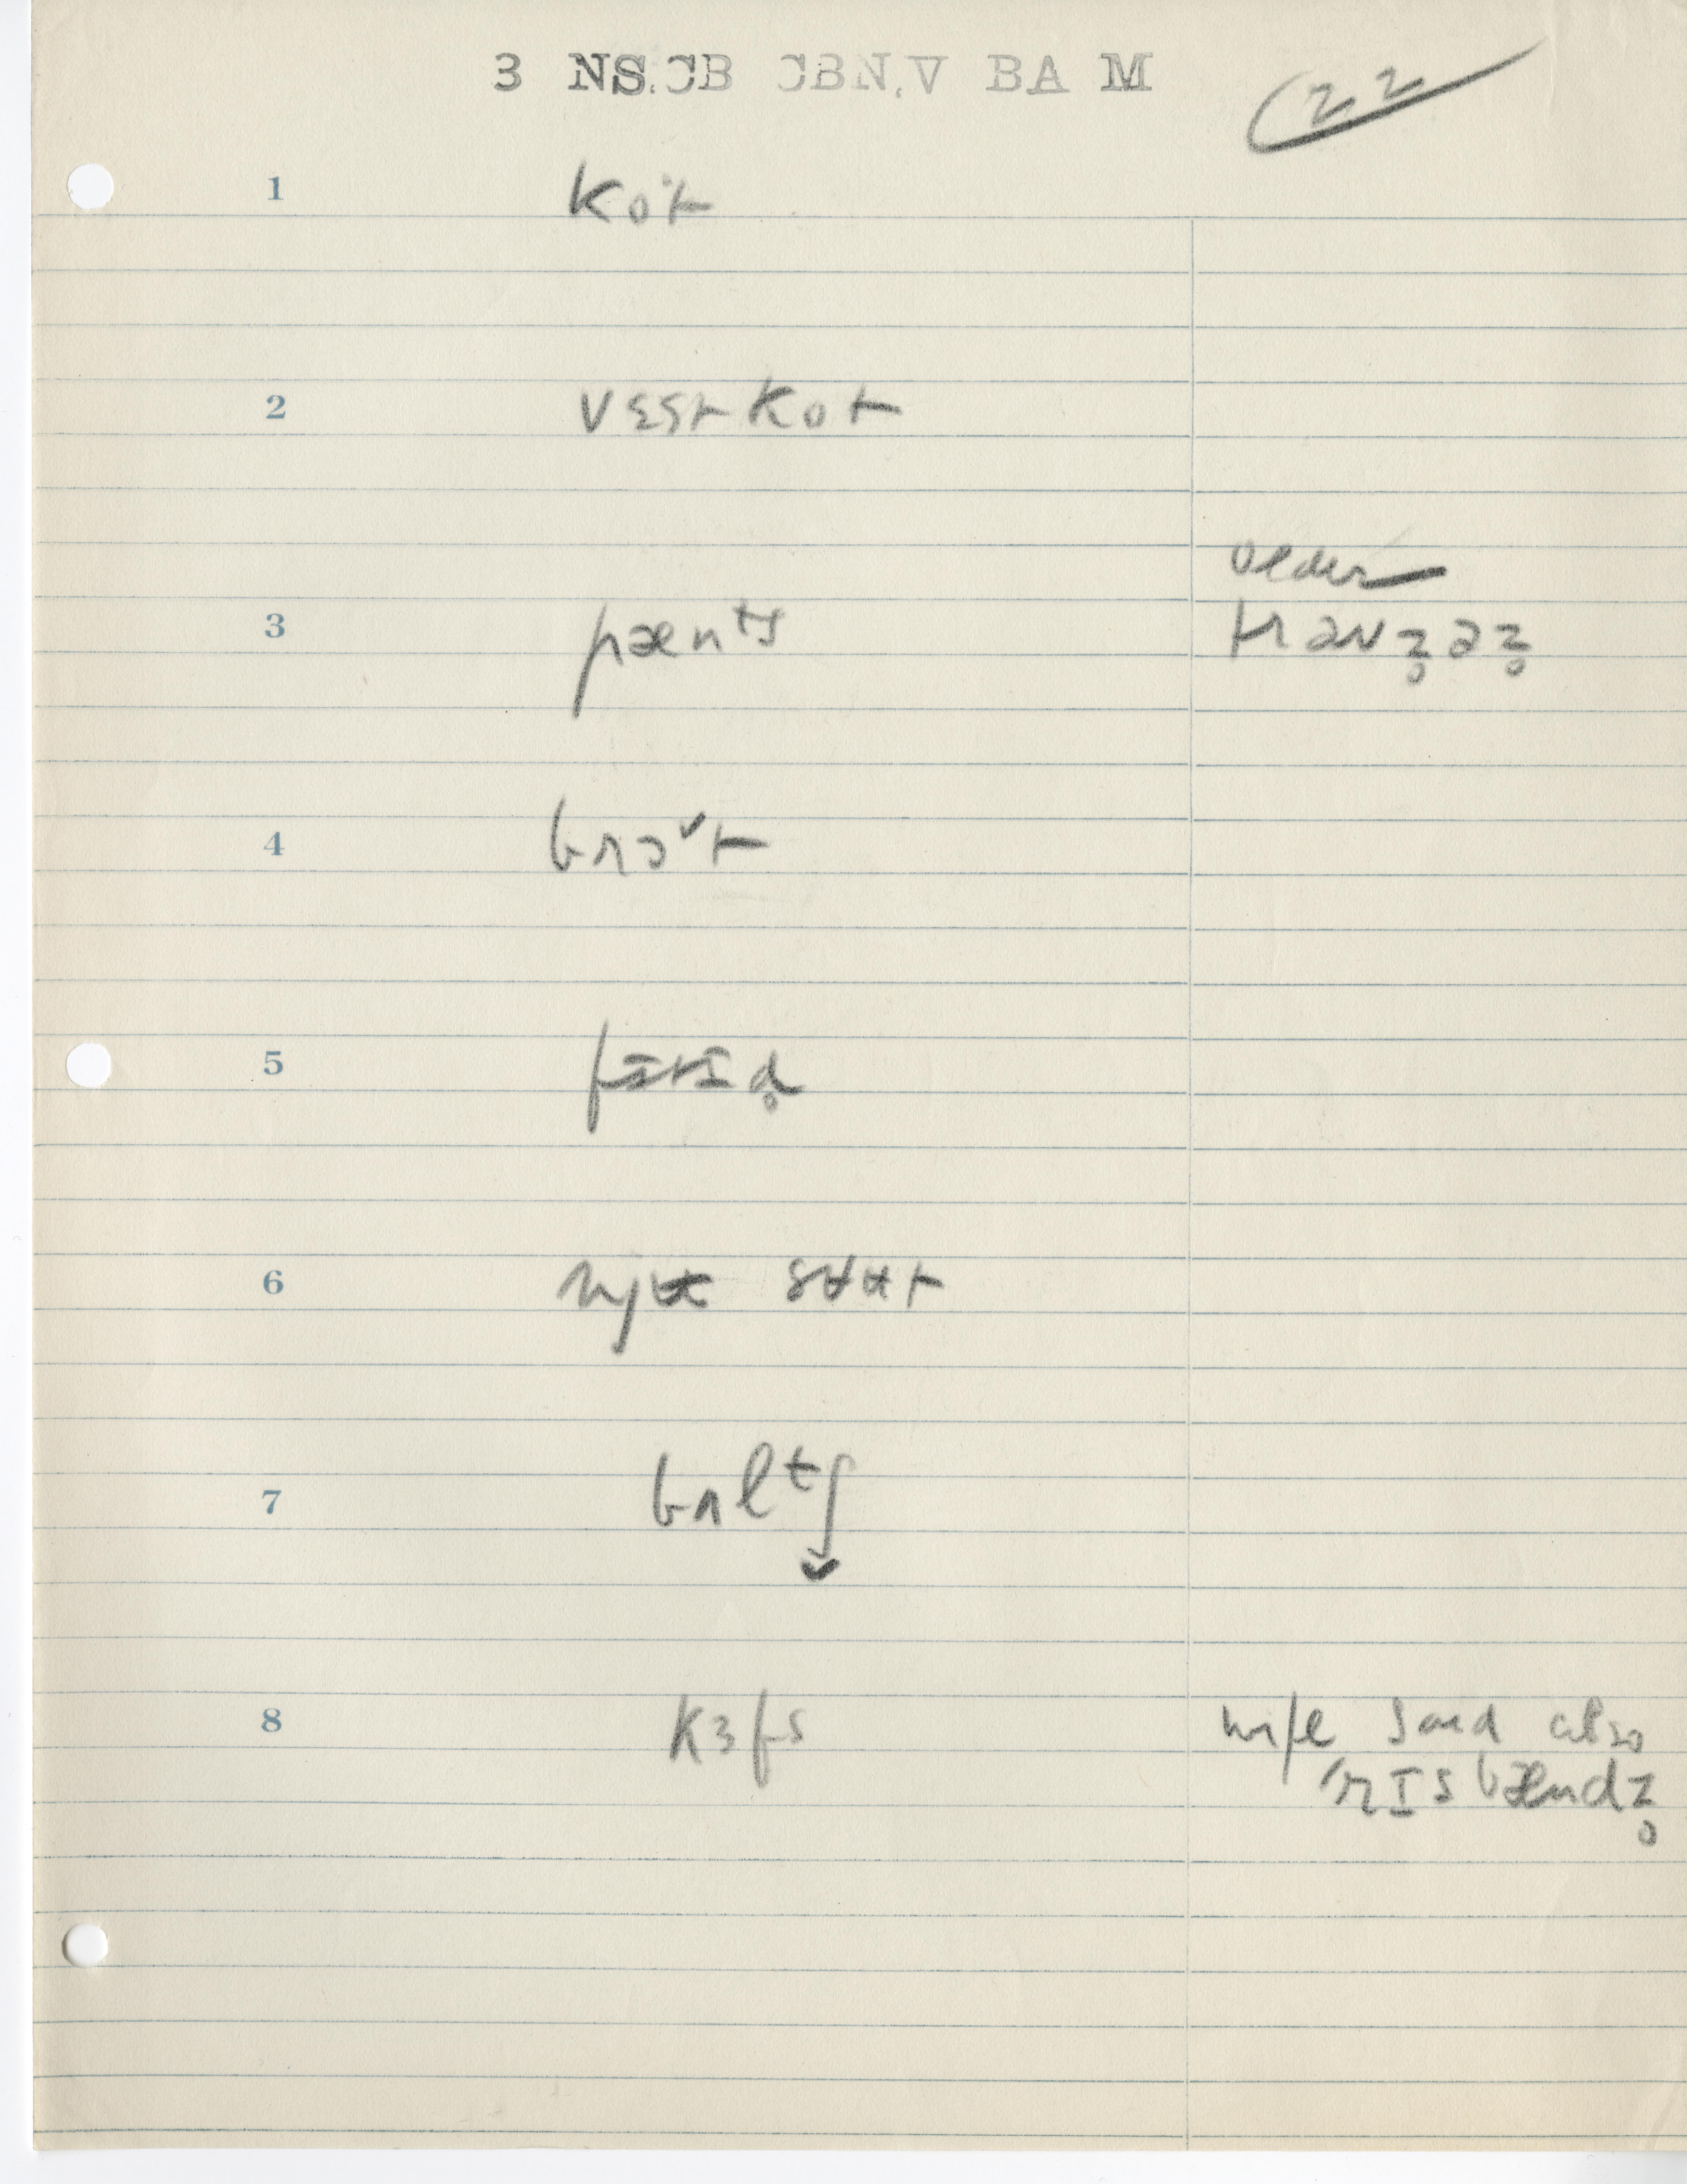 3 NS.CB CBN.V BA M
22
1 ko·t
2 vɛstkot
3 pænts
older
traʊz̥əz̥
4 brɔˇt
5 fɪtɪd̥
6 njʉ sʉʉt
7 bɹltʃ
8 kɜfs
wife said also
ˈrɪsbændz̥